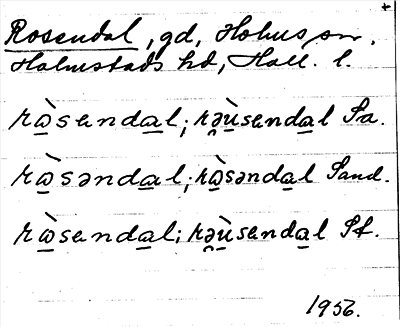 +
Rosendal, gd, Holms sn.
Halmstads hd, Hall. l.
rɷ̀sendal; rəùsendal Sa.
rɷ̀səndal; rɷ̀səndal Sand.
rɷ̀sendal; rəùsendal St.
1956.